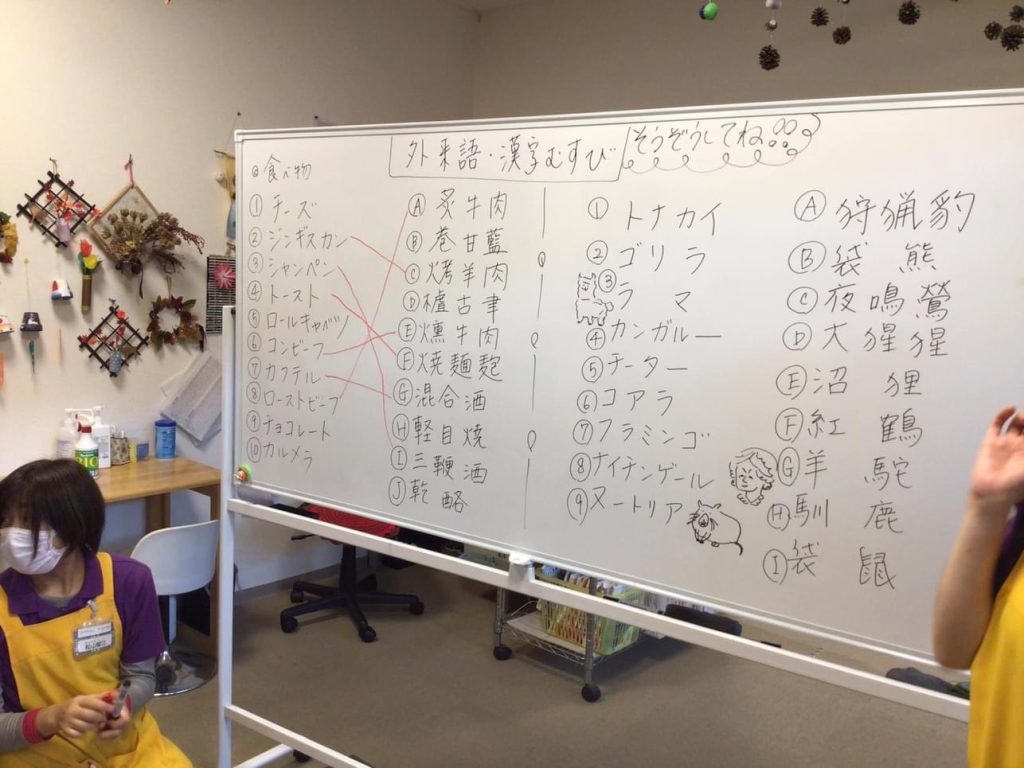 外来語・漢字むすび
そうぞうしてね
食べ物
① チーズ
② ジンギスカン
③ シャンペン
④ トースト
⑤ ロールキャベツ
⑥ コンビーフ
⑦ カクテル
⑧ ローストビーフ
⑨ チョコレート
⑩ カルメラ
Ⓐ 炙牛肉
Ⓑ 巻甘藍
Ⓒ 烤羊肉
Ⓓ 櫨古聿
Ⓔ 燻牛肉
Ⓕ 焼麺麭
Ⓖ 混合酒
Ⓗ 軽目焼
Ⓘ 三鞭酒
Ⓙ 乾酪
① トナカイ
② ゴリラ
③ ラマ
④ カンガルー
⑤ チーター
⑥ コアラ
⑦ フラミンゴ
⑧ ナイチンゲール
⑨ ヌートリア
Ⓐ 狩猟豹
Ⓑ 袋熊
Ⓒ 夜鳴鶯
Ⓓ 大猩猩
Ⓔ 沼狸
Ⓕ 紅鶴
Ⓖ 羊駝
Ⓗ 馴鹿
Ⓘ 袋鼠